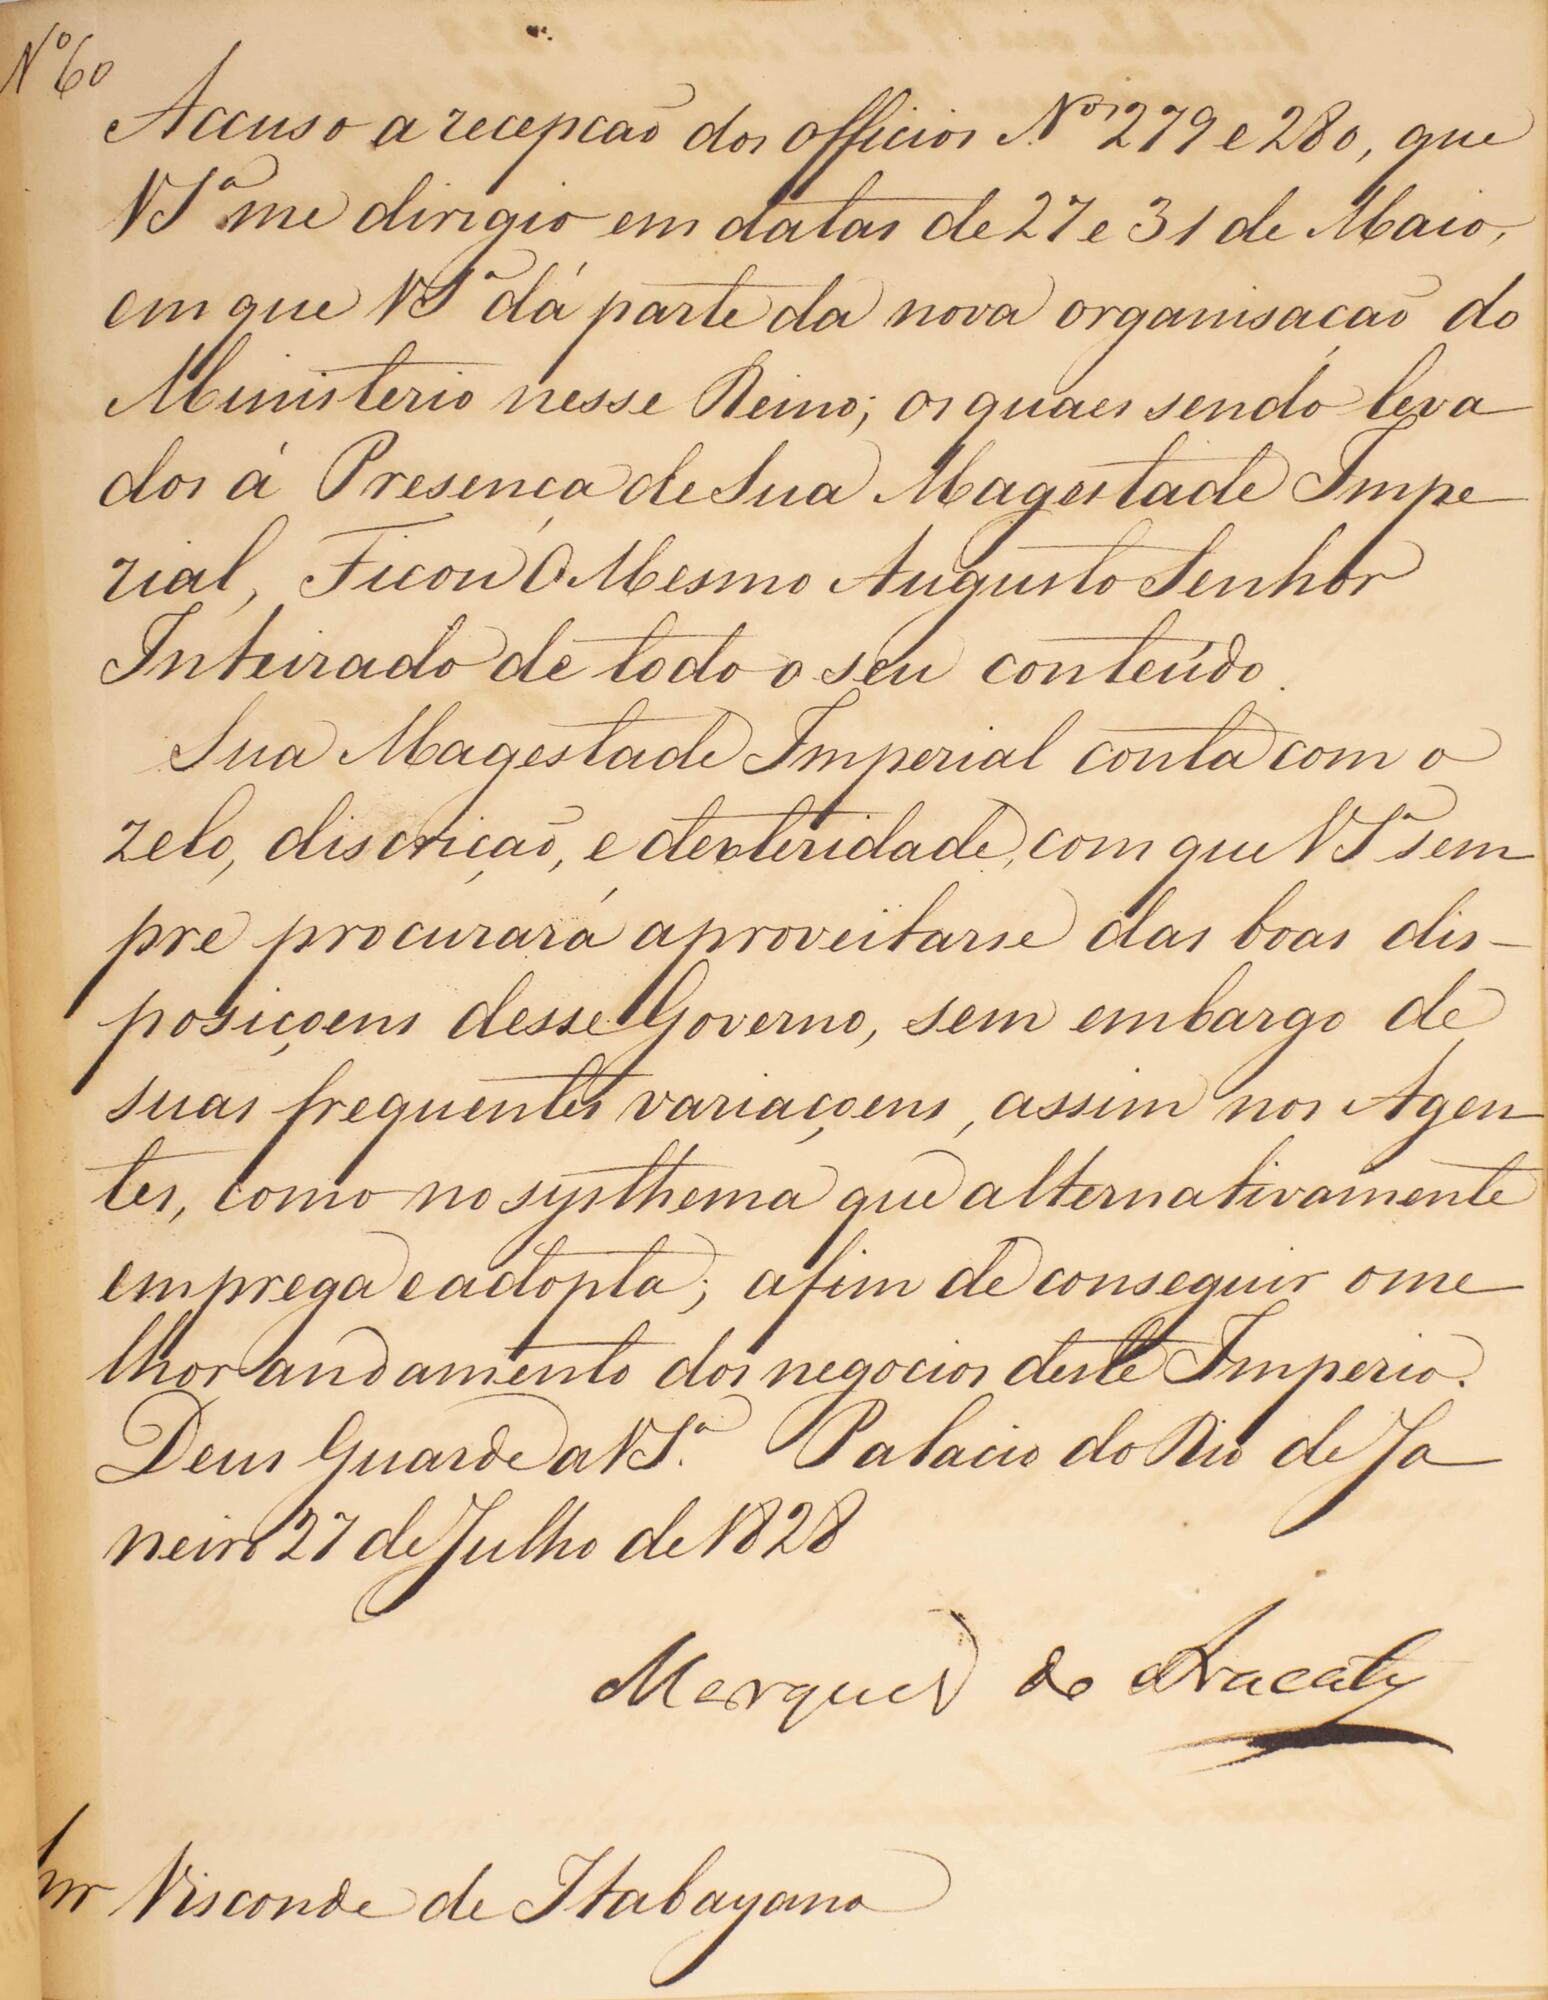 Nº 60
Accuso a recepção dos officios Nos 279 e 280, que
V Sª me dirigio em datas de 27 e 31 de Maio,
em que V Sª dá parte da nova organisação do
Ministerio nesse Reino; os quaes sendo leva
dos á Presença de Sua Magestade Impe
rial, Ficou O Mesmo Augusto Senhor
Inteirado de todo o seu conteúdo.
Sua Magestade Imperial conta com o
zelo, discrição, e dexteridade, com que V Sª sem
pre procurará aproveitarse das boas dis-
posiçoens desse Governo, sem embargo de
suas frequentes variaçoens, assim nos Agen
tes, como no systhema que alternativamente
emprega e adopta; afim de conseguir o me
lhor andamento dos negocios deste Imperio.
Deus Guarde a V Sª. Palacio do Rio de Ja
neiro 27 de Julho de 1828
Marquez de Aracaty
Visconde de Itabayana